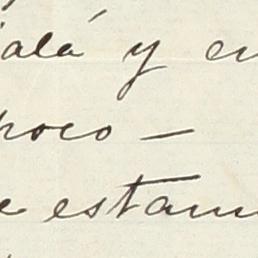 alá y en
poco —
e estam